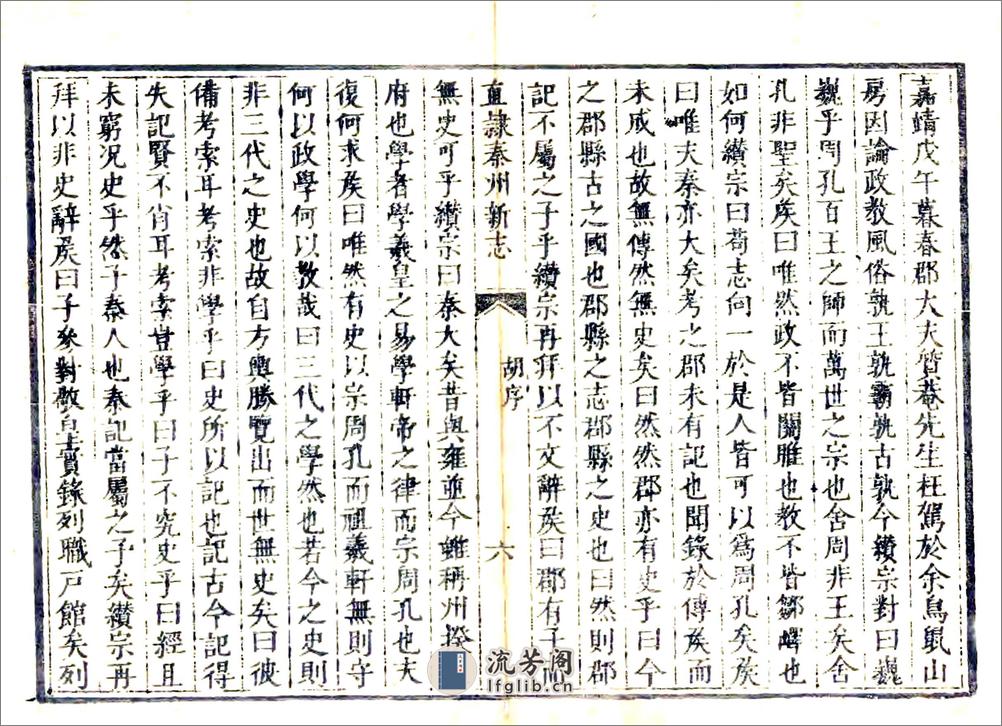 嘉靖戊午暮春郡大夫晳菴先生枉駕於余鳥鼠山
房因論政教風俗孰王孰霸孰古孰今纘宗對曰巍
巍乎周孔百王之師而萬世之宗也舍周非王矣舍
孔非聖矣矦曰唯然政不皆關雎也教不皆鄒嶧也
如何纘宗曰苟志向一於是人皆可以爲周孔矣矦
曰唯夫秦亦大矣考之郡未有記也聞錄於傅矦而
未成也故無傳然無史矣曰然然郡亦有史乎曰今
之郡縣古之國也郡縣之志郡縣之史也曰然則郡
記不屬之子乎纘宗再拜以不文辭矦曰郡有子而
直隷秦州新志
胡序
六
無史可乎纘宗曰秦大矣昔與雍並今雖稱州揆
府也學者學羲皇之易學軒帝之律而宗周孔也夫
復何求矦曰唯然有史以宗周孔而祖羲軒無則守
何以政學何以教哉曰三代之學然也若今之史則
非三代之史也故自方輿勝覽出而世無史矣曰彼
備考索耳考索非學乎曰史所以記也記古今記得
失記賢不肖耳考索豈學乎曰子不究史乎曰經且
未窮況史乎然子秦人也秦記當屬之子矣纘宗再
拜以非史辭矦曰子嘗對敬皇實錄列職戸館矣列
流芳阁
lfglib.cn